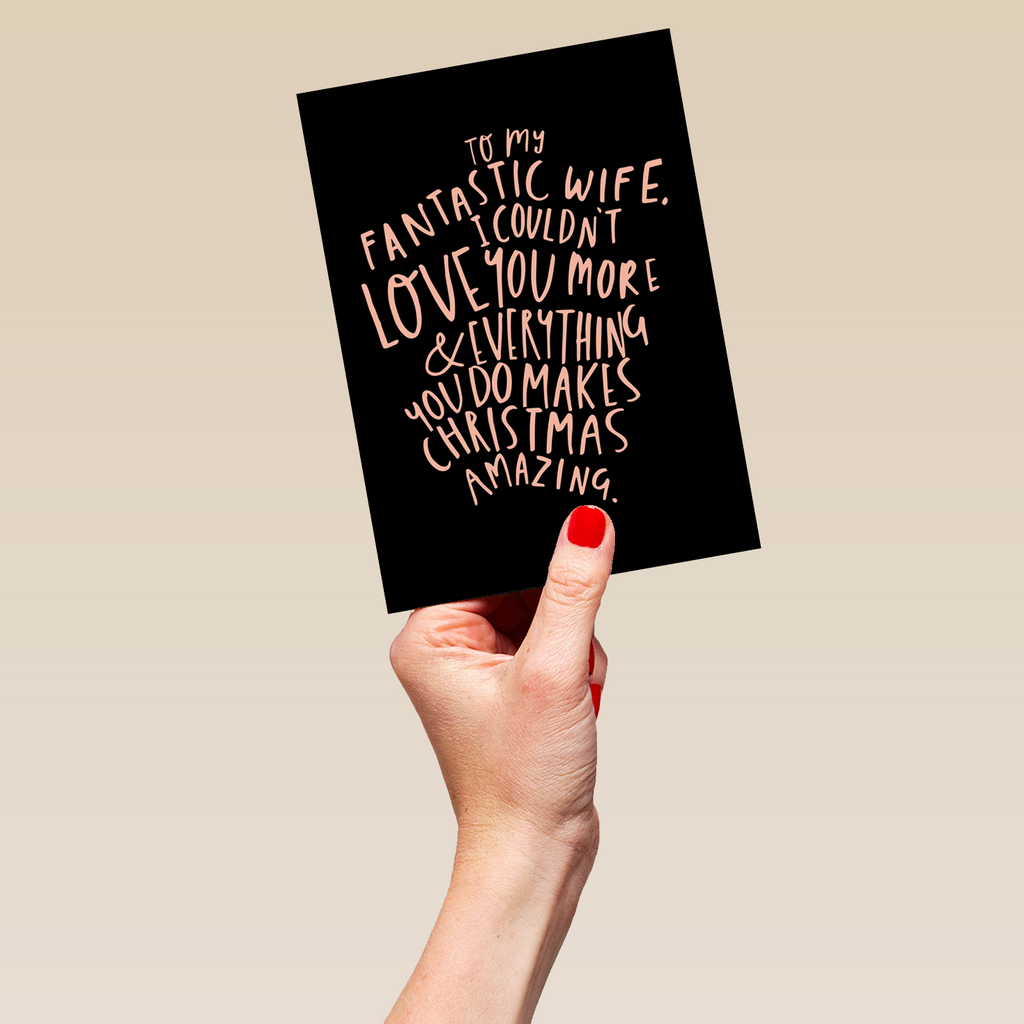 TO MY
FANTASTIC WIFE.
I COULDN'T
LOVE YOU MORE
& EVERYTHING
YOU DO MAKES
CHRISTMAS
AMAZING.